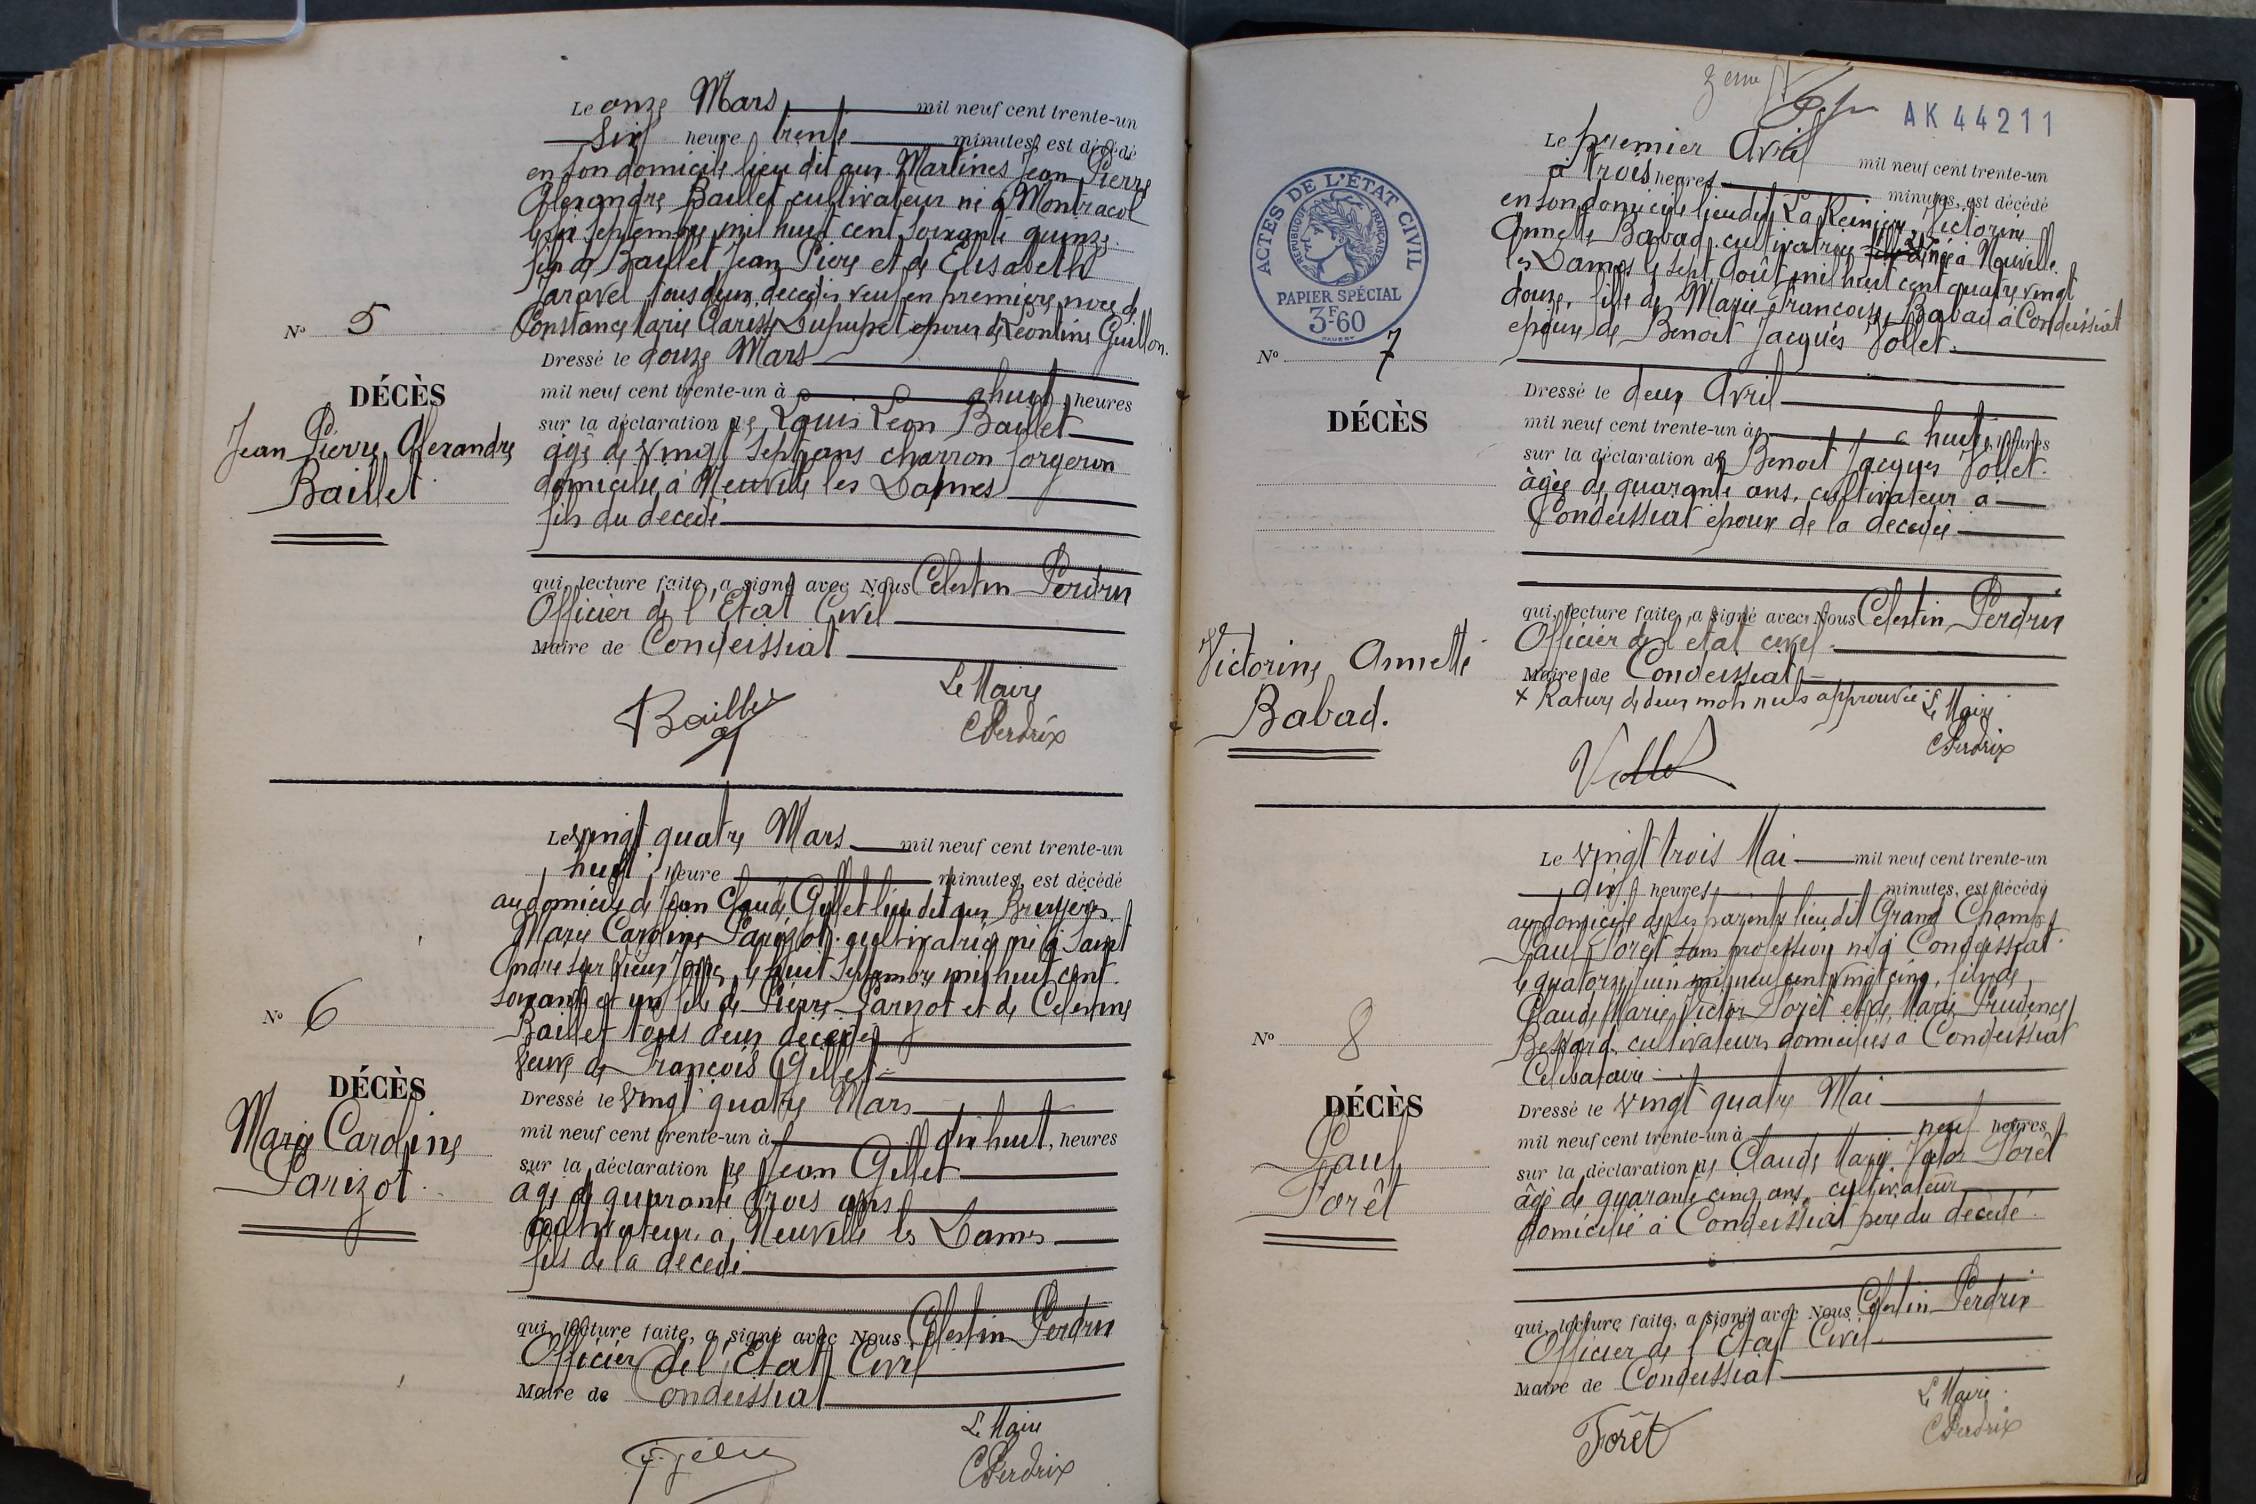 Le onze Mars mil neuf cent trente-un
Six heure trente minutes, est décédé
en son domicile lieu dit aux Martines Jean Pierre
Alexandre Baillet cultivateur né à Montracol
le six septembre mil huit cent soixante quinze
fils de Baillet Jean Piere et de Elisabeth
Jaravel tous deux décédés veuf en premiere noce de
Constance Marie Clarisse Dupupet epoux de Leontine Guillon.
Dressé le douze Mars
mil neuf cent trente-un à huit heures
sur la déclaration de Louis Leon Baillet
âgé de vingt sept ans charron forgeron
domicilié à Neuville les Dames
fils du decedé
qui, lecture faite, a signé avec Nous Celestin Perdrix
Officier de l'Etat Civil
Maire de Condeissiat
Le Maire
Baillet
CPerdrix
N° 5
DÉCÈS
Jean Pierre Alexandre
Baillet
Le vingt quatre Mars mil neuf cent trente-un
huit heure minutes, est décédé
au domicile de Jean Claude Gillet lieu dit aux Bruyeres
Marie Caroline Parizot cultivatrice né à Saint
Andre sur Vieux Jonc le huit septembre mil huit cent
soixante et un fils de Pierre Parizot et de Celestine
Baillet tous deux decedés
Veuve de François Gillet
Dressé le vingt quatre Mars
mil neuf cent trente-un à dix huit, heures
sur la déclaration de Jean Gillet
âgé de quarante trois ans
cultivateur à Neuville les Dames
fils de la decedé
qui, lecture faite, a signé avec Nous Celestin Perdrix
Officier de l'Etat Civil
Maire de Condeissiat
Le Maire
CPerdrix
N° 6
DÉCÈS
Marie Caroline
Parizot
AK 44211
ACTES DE L'ÉTAT CIVIL
RÉPUBLIQUE FRANÇAISE
PAPIER SPÉCIAL
3F60
Le premier Avril mil neuf cent trente-un
à trois heures minutes, est décédé
en son domicile lieu dit La Reiniere, Victorine
Annette Babad cultivatrice née à Neuville
les Dames le sept Août mil huit cent quatre vingt
douze, fille de Marie Françoise Babad à Condeissiat
epouse de Benoit Jacques Vollet.
Dressé le deux Avril
mil neuf cent trente-un à huit, heures
sur la déclaration de Benoit Jacques Vollet
âgée de quarante ans, cultivateur à
Condeissiat epoux de la decedée
qui, lecture faite, a signé avec Nous Celestin Perdrix
Officier de l etat civil
Maire de Condeissiat
+ Rature de deux mots nuls approuvée
Le Maire
Vollet
CPerdrix
N° 7
DÉCÈS
Victorine Annette
Babad.
Le vingt trois Mai mil neuf cent trente-un
dix heures minutes, est décédé
au domicile de ses parents lieu dit Grand Champ
Paul Forêt sans profession né à Condeissiat
le quatorze juin mil neuf cent vingt cinq, fils de
Claude Marie Victor Forêt et de Marie Prudence
Bessard cultivateurs domiciliés à Condeissiat
Celibataire
Dressé le vingt quatre Mai
mil neuf cent trente-un à neuf heures
sur la déclaration de Claude Marie Victor Forêt
âgé de quarante cinq ans, cultivateur
domicilié à Condeissiat pere du décedé
qui, lecture faite, a signé avec Nous Celestin Perdrix
Officier de l'Etat Civil
Maire de Condeissiat
Le Maire
Forêt
CPerdrix
N° 8
DÉCÈS
Paul
Forêt